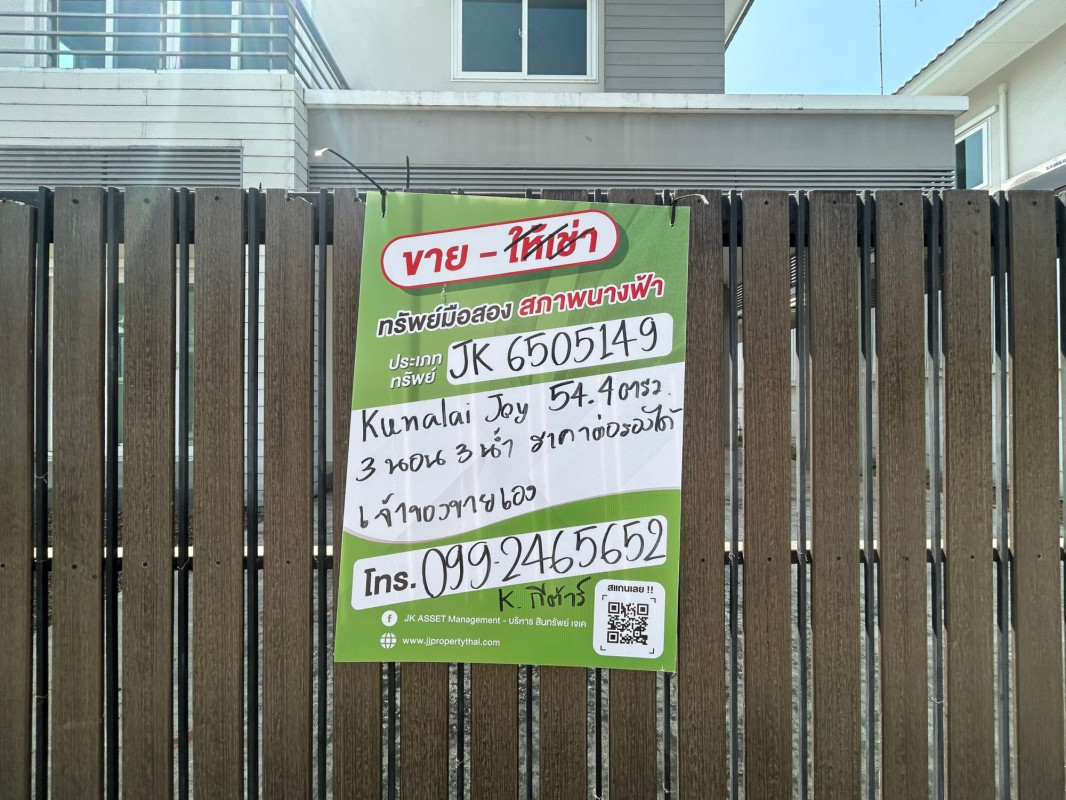 ขาย - ให้เช่า
ทรัพย์มือสอง สภาพนางฟ้า
ประเภททรัพย์ JK 6505149
Kunalai Joy 54.4 ตารว.
3 นอน 3 น้ำ ราคาต่อรองได้
เจ้าของขายเอง
โทร. 099-2465652
K. กีต้าร์
สแกนเลย !!
JK ASSET Management - บริหาร สินทรัพย์ เจเค
www.jjpropertythai.com